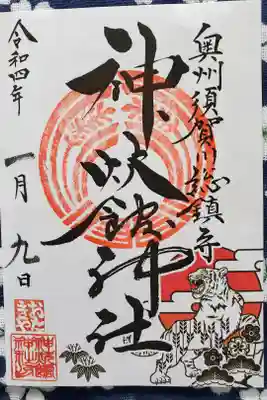 奥州須賀川総鎮守
神炊館神社
令和四年
一月九日